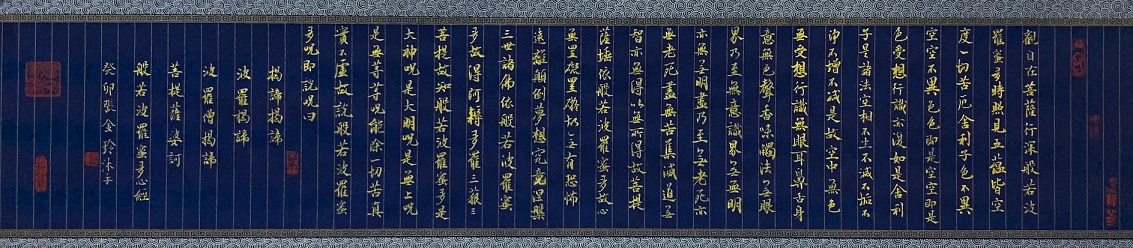 觀自在菩薩行深般若波
羅蜜多時照見五蘊皆空
度一切苦厄舍利子色不異
空空不異色色即是空空即是
色受想行識亦復如是舍利
子是諸法空相不生不滅不垢不
淨不增不減是故空中無色
無受想行識無眼耳鼻舌身
意無色聲香味觸法無眼
界乃至無意識界無無明
亦無無明盡乃至無老死亦
無老死盡無苦集滅道無
智亦無得以無所得故菩提
薩埵依般若波羅蜜多故心
無罣礙無罣礙故無有恐怖
遠離顛倒夢想究竟涅槃
三世諸佛依般若波羅蜜
多故得阿耨多羅三藐三
菩提故知般若波羅蜜多是
大神咒是大明咒是無上咒
是無等等咒能除一切苦真
實不虛故說般若波羅蜜
多咒即說咒曰
揭諦揭諦
波羅揭諦
波羅僧揭諦
菩提薩婆訶
般若波羅蜜多心經
癸卯張金玲沐手